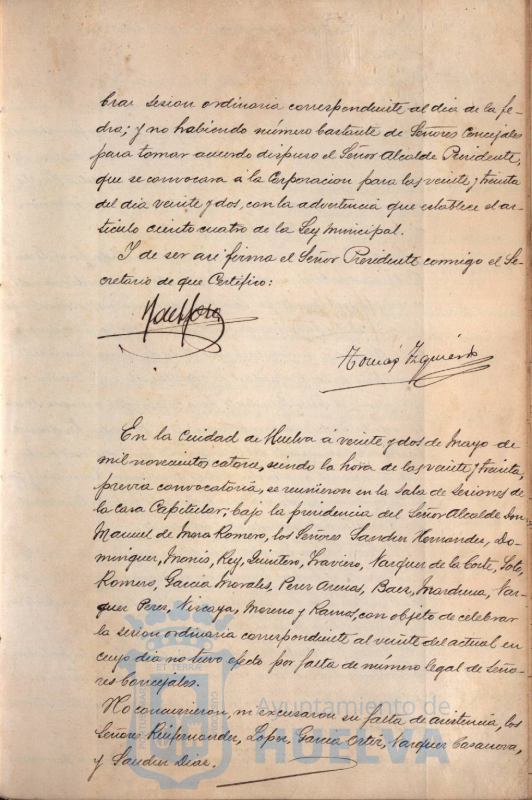 brar sesion ordinaria correspondiente al dia de la fe-
cha; y no habiendo número bastante de Señores Concejales
para tomar acuerdo dispuso el Señor Alcalde Presidente,
que se convocara á la Corporacion para las veinte y treinta
del dia veinte y dos, con la advertencia que establece el ar-
tículo ciento cuatro de la Ley Municipal.
Y de ser así firma el Señor Presidente conmigo el Se-
cretario de que Certifico:
Tomás Izquierdo
En la Ciudad de Huelva á veinte y dos de Mayo de
mil novecientos catorce, siendo la hora de las veinte y treinta,
previa convocatoria, se reunieron en la Sala de Sesiones de
la Casa Capitular; bajo la presidencia del Señor Alcalde Don
Manuel de Mora Romero, los Señores Sanchez Hernandez, Do-
minguez, Monis, Rey, Quintero, Traviero, Vazquez de la Corte, Soto,
Romero, García Morales, Perez Arenas, Baez, Mardenes, Vaz-
quez Perez, Vizcaya, Moreno y Ramos, con objeto de celebrar
la sesion ordinaria correspondiente al veinte del actual en
cuyo dia no tuvo efecto por falta de número legal de Seño-
res Concejales.
No concurrieron, ni excusaron su falta de asistencia, los
Señores Rinfernandez, Lopez, García Ortiz, Vazquez Casanova,
y Sanchez Diaz.
Ayuntamiento de
HUELVA